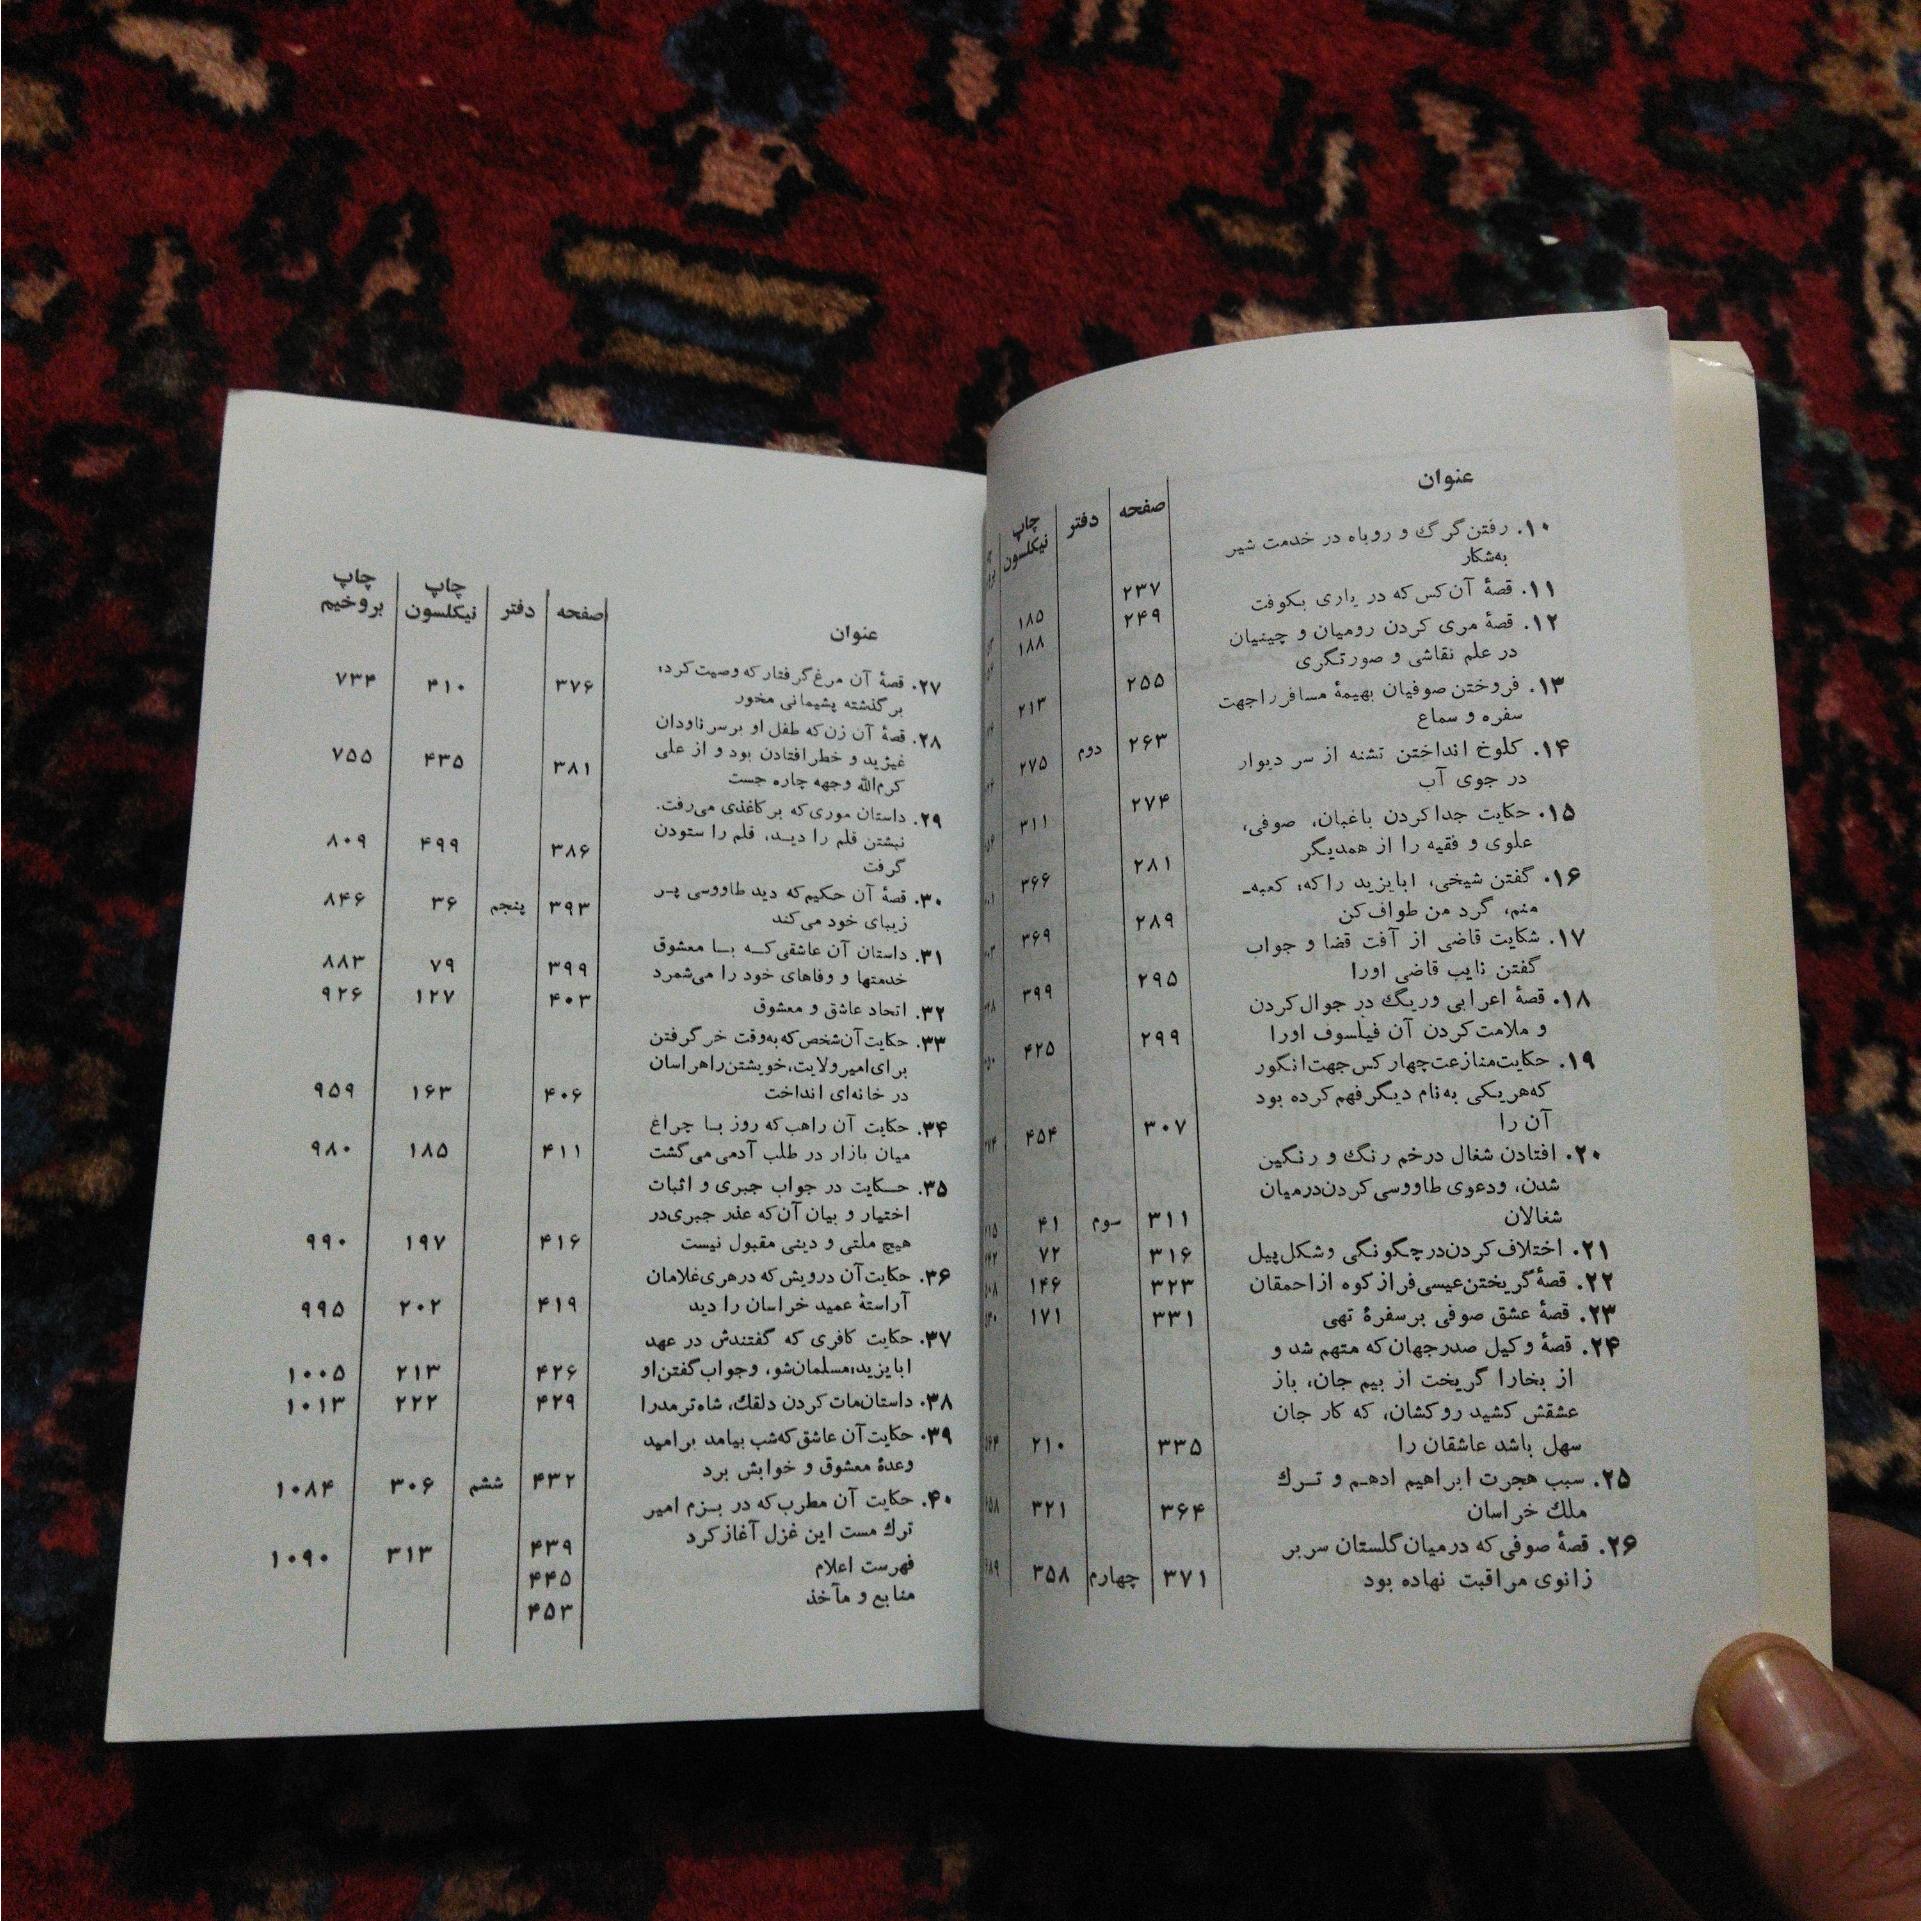 عنوان صفحه دفتر چاپ نیکلسون
۱۰. رفتن گرگ و روباه در خدمت شیر
به‌شکار ۲۳۷ ۱۸۵
۱۱. قصهٔ آن کس که در یاری بکوفت ۲۴۹ ۱۸۸
۱۲. قصهٔ مری کردن رومیان و چینیان
در علم نقاشی و صورتگری ۲۵۵ ۲۱۳
۱۳. فروختن صوفیان بهیمهٔ مسافر را جهت
سفره و سماع ۲۶۳ دوم ۲۷۵
۱۴. کلوخ انداختن تشنه از سر دیوار
در جوی آب ۲۷۴ ۳۱۱
۱۵. حکایت جدا کردن باغبان، صوفی،
علوی و فقیه را از همدیگر ۲۸۱ ۳۶۶
۱۶. گفتن شیخی، ابایزید را که: کعبه‌ـ
منم، گرد من طواف کن ۲۸۹ ۳۶۹
۱۷. شکایت قاضی از آفت قضا و جواب
گفتن نایب قاضی اورا ۲۹۵ ۳۹۹
۱۸. قصهٔ اعرابی و ریگ در جوال کردن
و ملامت کردن آن فیلسوف اورا ۲۹۹ ۴۲۵
۱۹. حکایت منازعت چهار کس جهت انگور
که هریکی به‌نام دیگر فهم کرده بود
آن را ۳۰۷ ۴۵۴
۲۰. افتادن شغال در خم رنگ و رنگین
شدن، و دعوی طاووسی کردن در میان
شغالان ۳۱۱ سوم ۴۱
۲۱. اختلاف کردن در چگونگی و شکل پیل ۳۱۶ ۷۲
۲۲. قصهٔ گریختن عیسی فراز کوه از احمقان ۳۲۳ ۱۴۶
۲۳. قصهٔ عشق صوفی بر سفرهٔ تهی ۳۳۱ ۱۷۱
۲۴. قصهٔ وکیل صدر جهان که متهم شد و
از بخارا گریخت از بیم جان، باز
عشقش کشید روکشان، که کار جان
سهل باشد عاشقان را ۳۳۵ ۲۱۰
۲۵. سبب هجرت ابراهیم ادهم و ترك
ملك خراسان ۳۶۴ ۳۲۱
۲۶. قصهٔ صوفی که در میان گلستان سر بر
زانوی مراقبت نهاده بود ۳۷۱ چهارم ۳۵۸
عنوان صفحه دفتر چاپ نیکلسون چاپ بروخیم
۲۷. قصهٔ آن مرغ گرفتار که وصیت کرد: ۳۷۶ ۴۱۰ ۷۳۴
بر گذشته پشیمانی مخور
۲۸. قصهٔ آن زن که طفل او بر سر ناودان
غیژید و خطر افتادن بود و از علی ۳۸۱ ۴۳۵ ۷۵۵
کرم‌الله وجهه چاره جست
۲۹. داستان موری که بر کاغذی می‌رفت.
نبشتن قلم را دید، قلم را ستودن ۳۸۶ ۴۹۹ ۸۰۹
گرفت
۳۰. قصهٔ آن حکیم که دید طاووسی پر ۳۹۳ پنجم ۳۶ ۸۴۶
زیبای خود می‌کند
۳۱. داستان آن عاشقی که با معشوق
خدمتها و وفاهای خود را می‌شمرد ۳۹۹ ۷۹ ۸۸۳
۳۲. اتحاد عاشق و معشوق ۴۰۳ ۱۲۷ ۹۲۶
۳۳. حکایت آن شخص که به‌وقت خر گرفتن
برای امیر ولایت، خویشتن را هراسان
در خانه‌ای انداخت ۴۰۶ ۱۶۳ ۹۵۹
۳۴. حکایت آن راهب که روز با چراغ
میان بازار در طلب آدمی می‌گشت ۴۱۱ ۱۸۵ ۹۸۰
۳۵. حکایت در جواب جبری و اثبات
اختیار و بیان آن که عذر جبری در
هیچ ملتی و دینی مقبول نیست ۴۱۶ ۱۹۷ ۹۹۰
۳۶. حکایت آن درویش که در هری غلامان
آراستهٔ عمید خراسان را دید ۴۱۹ ۲۰۲ ۹۹۵
۳۷. حکایت کافری که گفتندش در عهد
ابایزید: مسلمان شو، و جواب گفتن او ۴۲۶ ۲۱۳ ۱۰۰۵
۳۸. داستان مات کردن دلقك، شاه ترمد را ۴۲۹ ۲۲۲ ۱۰۱۳
۳۹. حکایت آن عاشق که شب بیامد بر امید
وعدهٔ معشوق و خوابش برد ۴۳۲ ششم ۳۰۶ ۱۰۸۴
۴۰. حکایت آن مطرب که در بزم امیر
ترك مست این غزل آغاز کرد ۴۳۹ ۳۱۳ ۱۰۹۰
فهرست اعلام ۴۴۵
منابع و مآخذ ۴۵۳